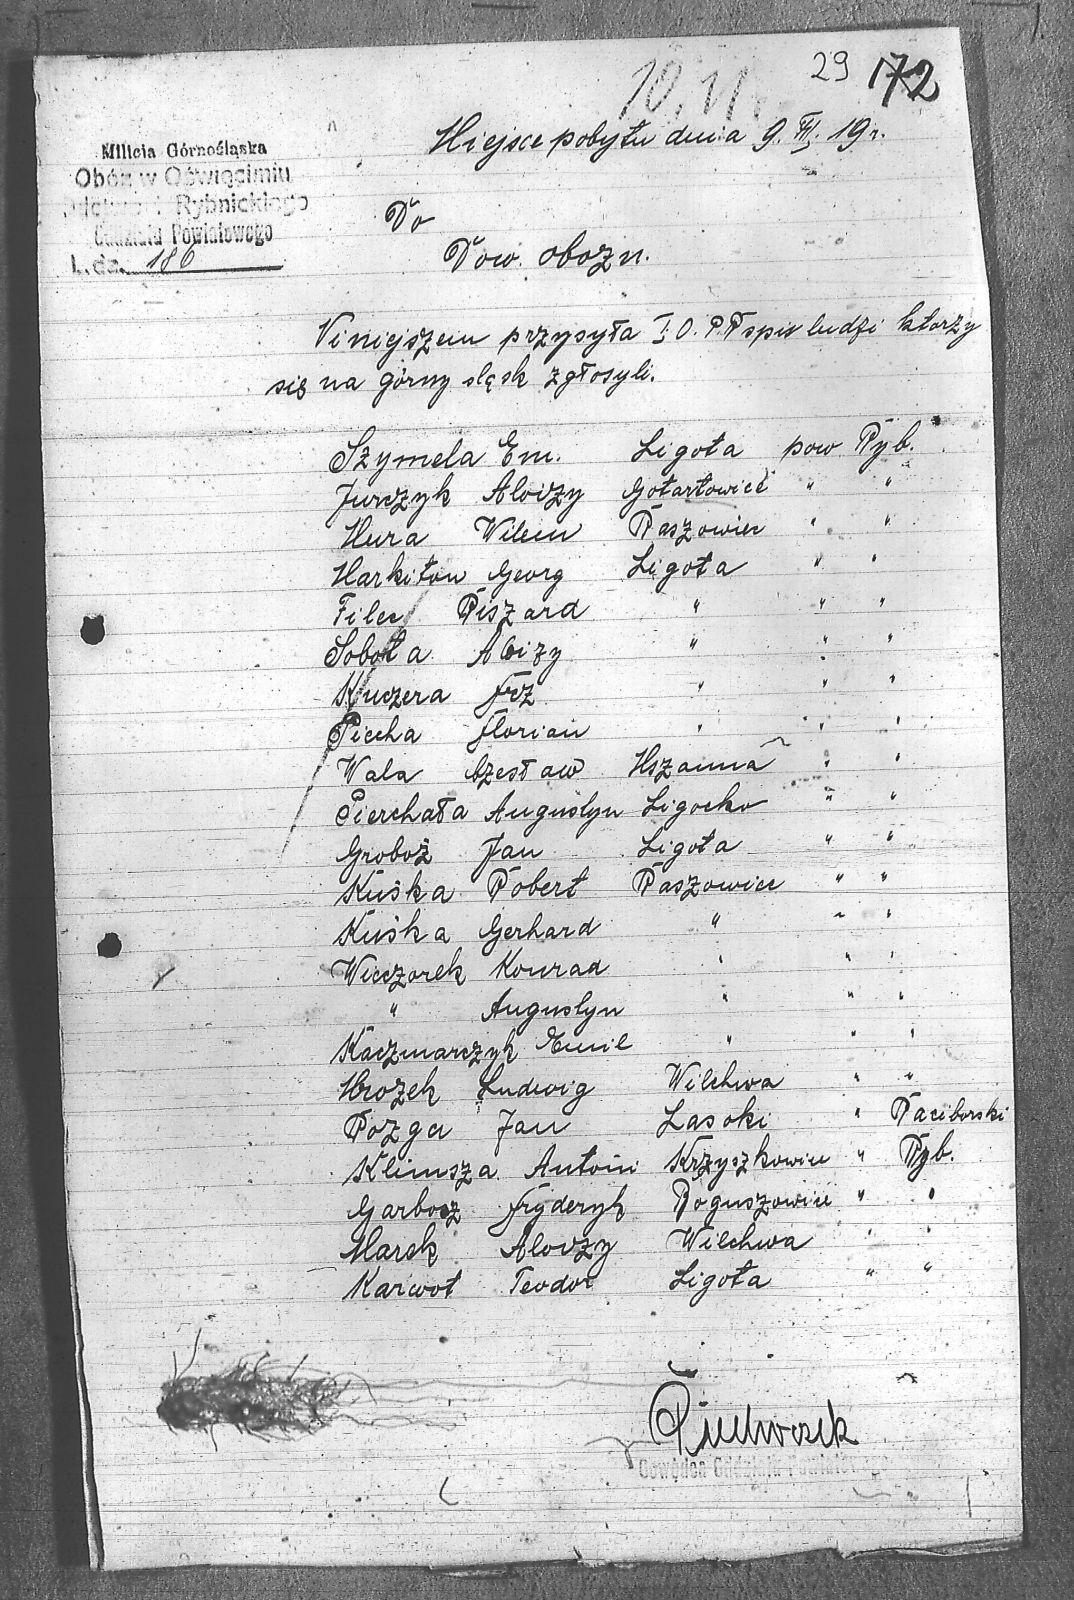 29 172
10. 11
Miejsce pobytu dnia 9. XI. 19 r.
Milicja Górnośląska
Obóz w Oświęcimiu
Rybnickiego
Oddziału Powiatowego
L. dz. 186
Do
Dow. obozu.
Niniejszem przysyła I. O. P. R spis ludzi ktorzy
się na górny sląsk zgłosyli.
Szymela Em. Ligota pow Ryb.
Jurczyk Alojzy Gotartowice " "
Mura Wilem Raszowiec " "
Markiton Georg Ligota " "
Filec Riszard " " "
Sobota Aloizy " " "
Kuczera Frz " " "
Piecha Florian " " "
Wala Czesław Mszanna " "
Pierchała Augustyn Ligocko " "
Groboż Jan Ligota " "
Kuśka Robert Raszowice " "
Kuśka Gerhard " " "
Wieczorek Konrad " " "
" Augustyn " " "
Kaczmarczyk Emil " " "
Mrozek Ludwig Wilchwa " "
Rozga Jan Lasoki " Raciborski
Klimsza Antoni Krzyszkowice " Ryb.
Garbocz Fryderyk Boguszowice " "
Marek Alojzy Wilchwa " "
Karwot Teodor Ligota " "
Dowódca Oddziału Powiatowego